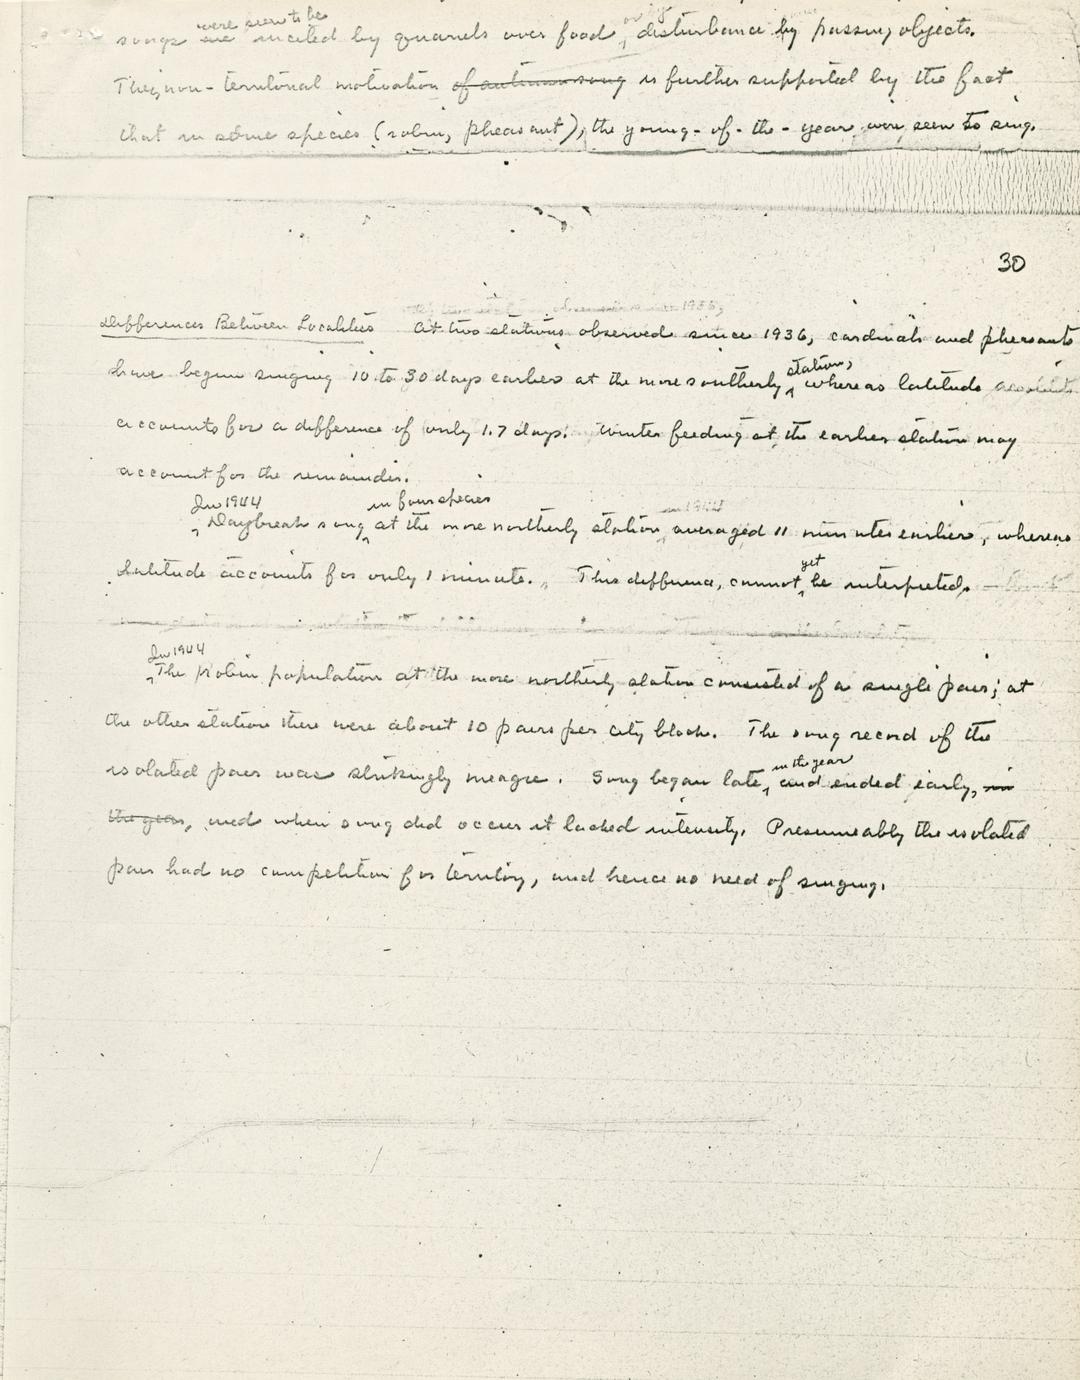 were seen to be
songs are incited by quarrels over food, or by disturbance by passing objects.
Their non-territorial motivation of autumn song is further supported by the fact
that in some species (robin, pheasant), the young-of-the-year were seen to sing.
30
Differences Between Localities At two stations observed since 1936, cardinals and pheasants
have begun singing 10 to 30 days earlier at the more southerly station, whereas latitude
accounts for a difference of only 1.7 days. Winter feeding at the earlier station may
account for the remainder.
In 1944 in four species
Daybreak song at the more northerly station averaged 11 minutes earlier, whereas
latitude accounts for only 1 minute. This difference cannot yet be interpreted.
In 1944
The robin population at the more northerly station consisted of a single pair; at
the other station there were about 10 pairs per city block. The song record of the
isolated pair was strikingly meagre. Song began late in the year and ended early, in
the year, and when song did occur it lacked intensity. Presumeably the isolated
pair had no competition for territory, and hence no need of singing.